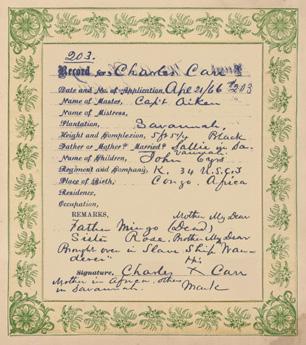 203.
Record for Charles Carr
Date and No. of Application, Apl 21/66 No 203
Name of Master, Capt Aiken
Name of Mistress,
Plantation, Savannah
Height and Complexion, 5/ Black
Father or Mother? Married? Sallie in Sa-
Name of Children, vannah. John Cyrs
Regiment and Company, K. 34 U.S.C.T
Place of Birth, Congo, Africa
Residence,
Occupation,
REMARKS, Mother My Dear
Father Mingo (Dead)
Sister Rose. Mother My Dear
Brought over in Slave Ship Wan-
derer" His
Signature, Charles X Carr
Mother in Africa, other Mark
in Savannah.